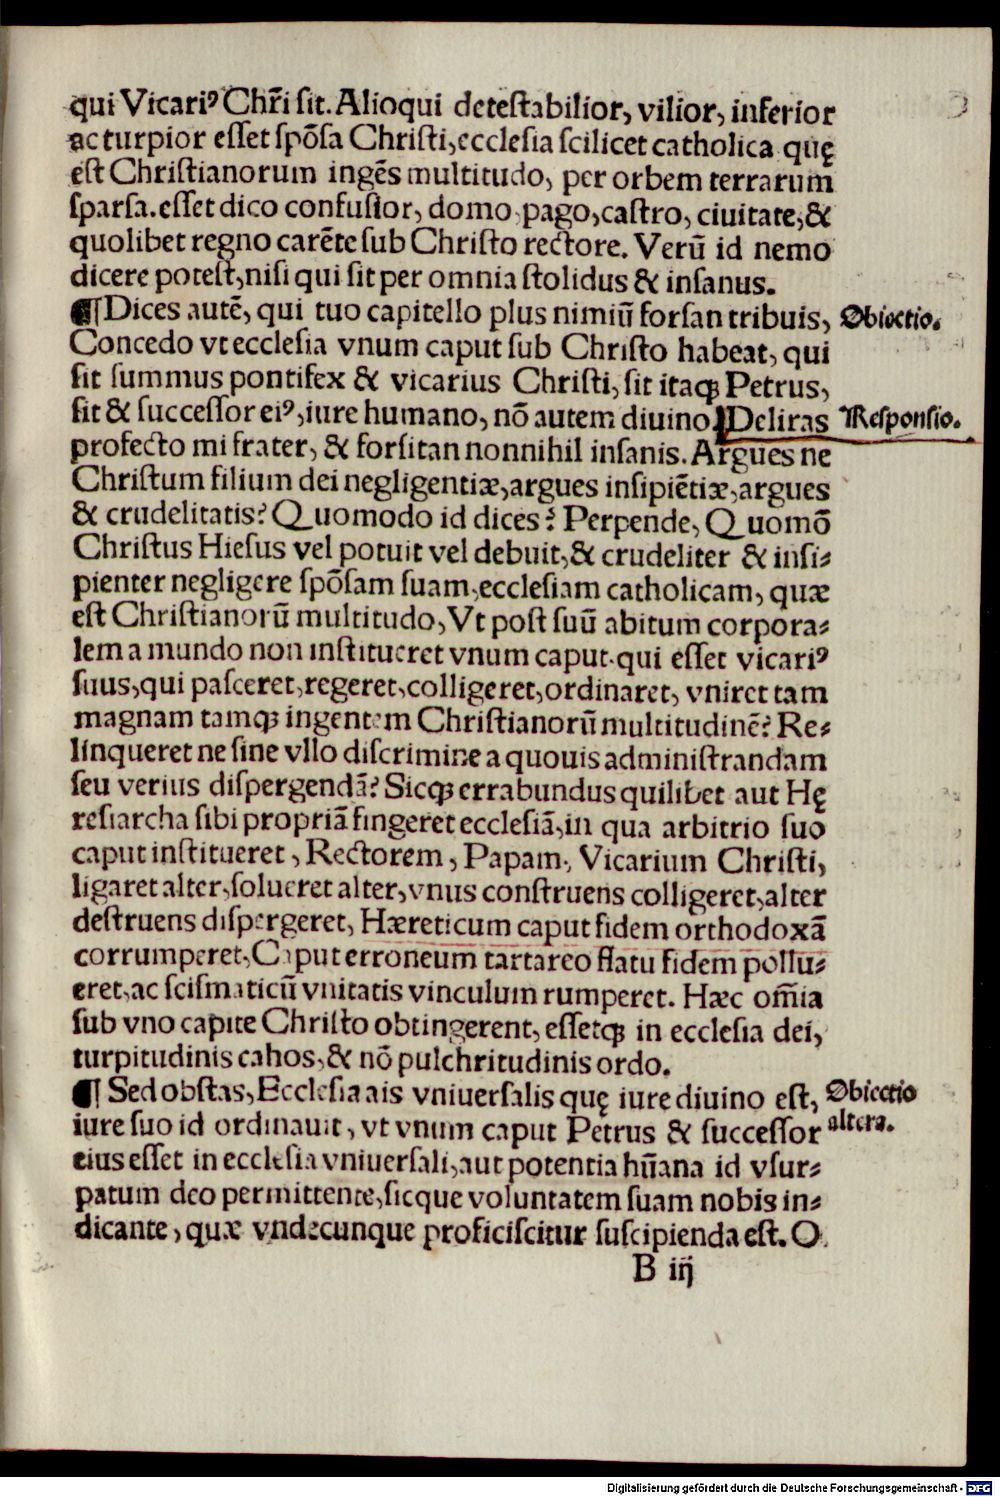 qui Vicariꝰ Chr̃i ſit. Alioqui deteſtabilior, vilior, inferior
ac turpior eſſet ſpõſa Chriſti, eccleſia ſcilicet catholica quę
eſt Chriſtianorum ingẽs multitudo, per orbem terrarum
ſparſa. eſſet dico confuſior, domo, pago, caſtro, ciuitate, &
quolibet regno carẽte ſub Chriſto rectore. Verũ id nemo
dicere poteſt, niſi qui ſit per omnia ſtolidus & inſanus.
¶ Dices autẽ, qui tuo capitello plus nimiũ forſan tribuis,
Obiectio.
Concedo vt eccleſia vnum caput ſub Chriſto habeat, qui
ſit ſummus pontifex & vicarius Chriſti, ſit itaqꝫ Petrus,
ſit & ſucceſſor eiꝰ, iure humano, nõ autem diuino. ¶ Deliras
Reſponſio.
profecto mi frater, & forſitan nonnihil inſanis. Argues ne
Chriſtum filium dei negligentiæ, argues inſipiẽtiæ, argues
& crudelitatis? Quomodo id dices? Perpende, Quomõ
Chriſtus Hieſus vel potuit vel debuit, & crudeliter & inſi⸗
pienter negligere ſpõſam ſuam, eccleſiam catholicam, quæ
eſt Chriſtianorũ multitudo, Vt poſt ſuũ abitum corpora⸗
lem a mundo non inſtitueret vnum caput. qui eſſet vicariꝰ
ſuus, qui paſceret, regeret, colligeret, ordinaret, vniret tam
magnam tamqꝫ ingentem Chriſtianorũ multitudinẽ? Re⸗
linqueret ne ſine vllo diſcrimine a quouis adminiſtrandam
ſeu verius diſpergendã? Sicqꝫ errabundus quilibet aut Hę
reſiarcha ſibi propriã fingeret eccleſiã, in qua arbitrio ſuo
caput inſtitueret, Rectorem, Papam, Vicarium Chriſti,
ligaret alter, ſolueret alter, vnus conſtruens colligeret, alter
deſtruens diſpergeret, Hæreticum caput fidem orthodoxã
corrumperet, Caput erroneum tartareo flatu fidem pollu⸗
eret, ac ſciſmaticũ vnitatis vinculum rumperet. Hæc om̃ia
ſub vno capite Chriſto obtingerent, eſſetqꝫ in eccleſia dei,
turpitudinis cahos, & nõ pulchritudinis ordo.
¶ Sed obſtas, Eccleſia ais vniuerſalis quę iure diuino eſt,
Obiectio
altera.
iure ſuo id ordinauit, vt vnum caput Petrus & ſucceſſor
eius eſſet in eccleſia vniuerſali, aut potentia hũana id vſur⸗
patum deo permittente, ſicque voluntatem ſuam nobis in⸗
dicante, quæ vndecunque proficiſcitur ſuſcipienda eſt. O
B iij
Digitalisierung gefördert durch die Deutsche Forschungsgemeinschaft - DFG